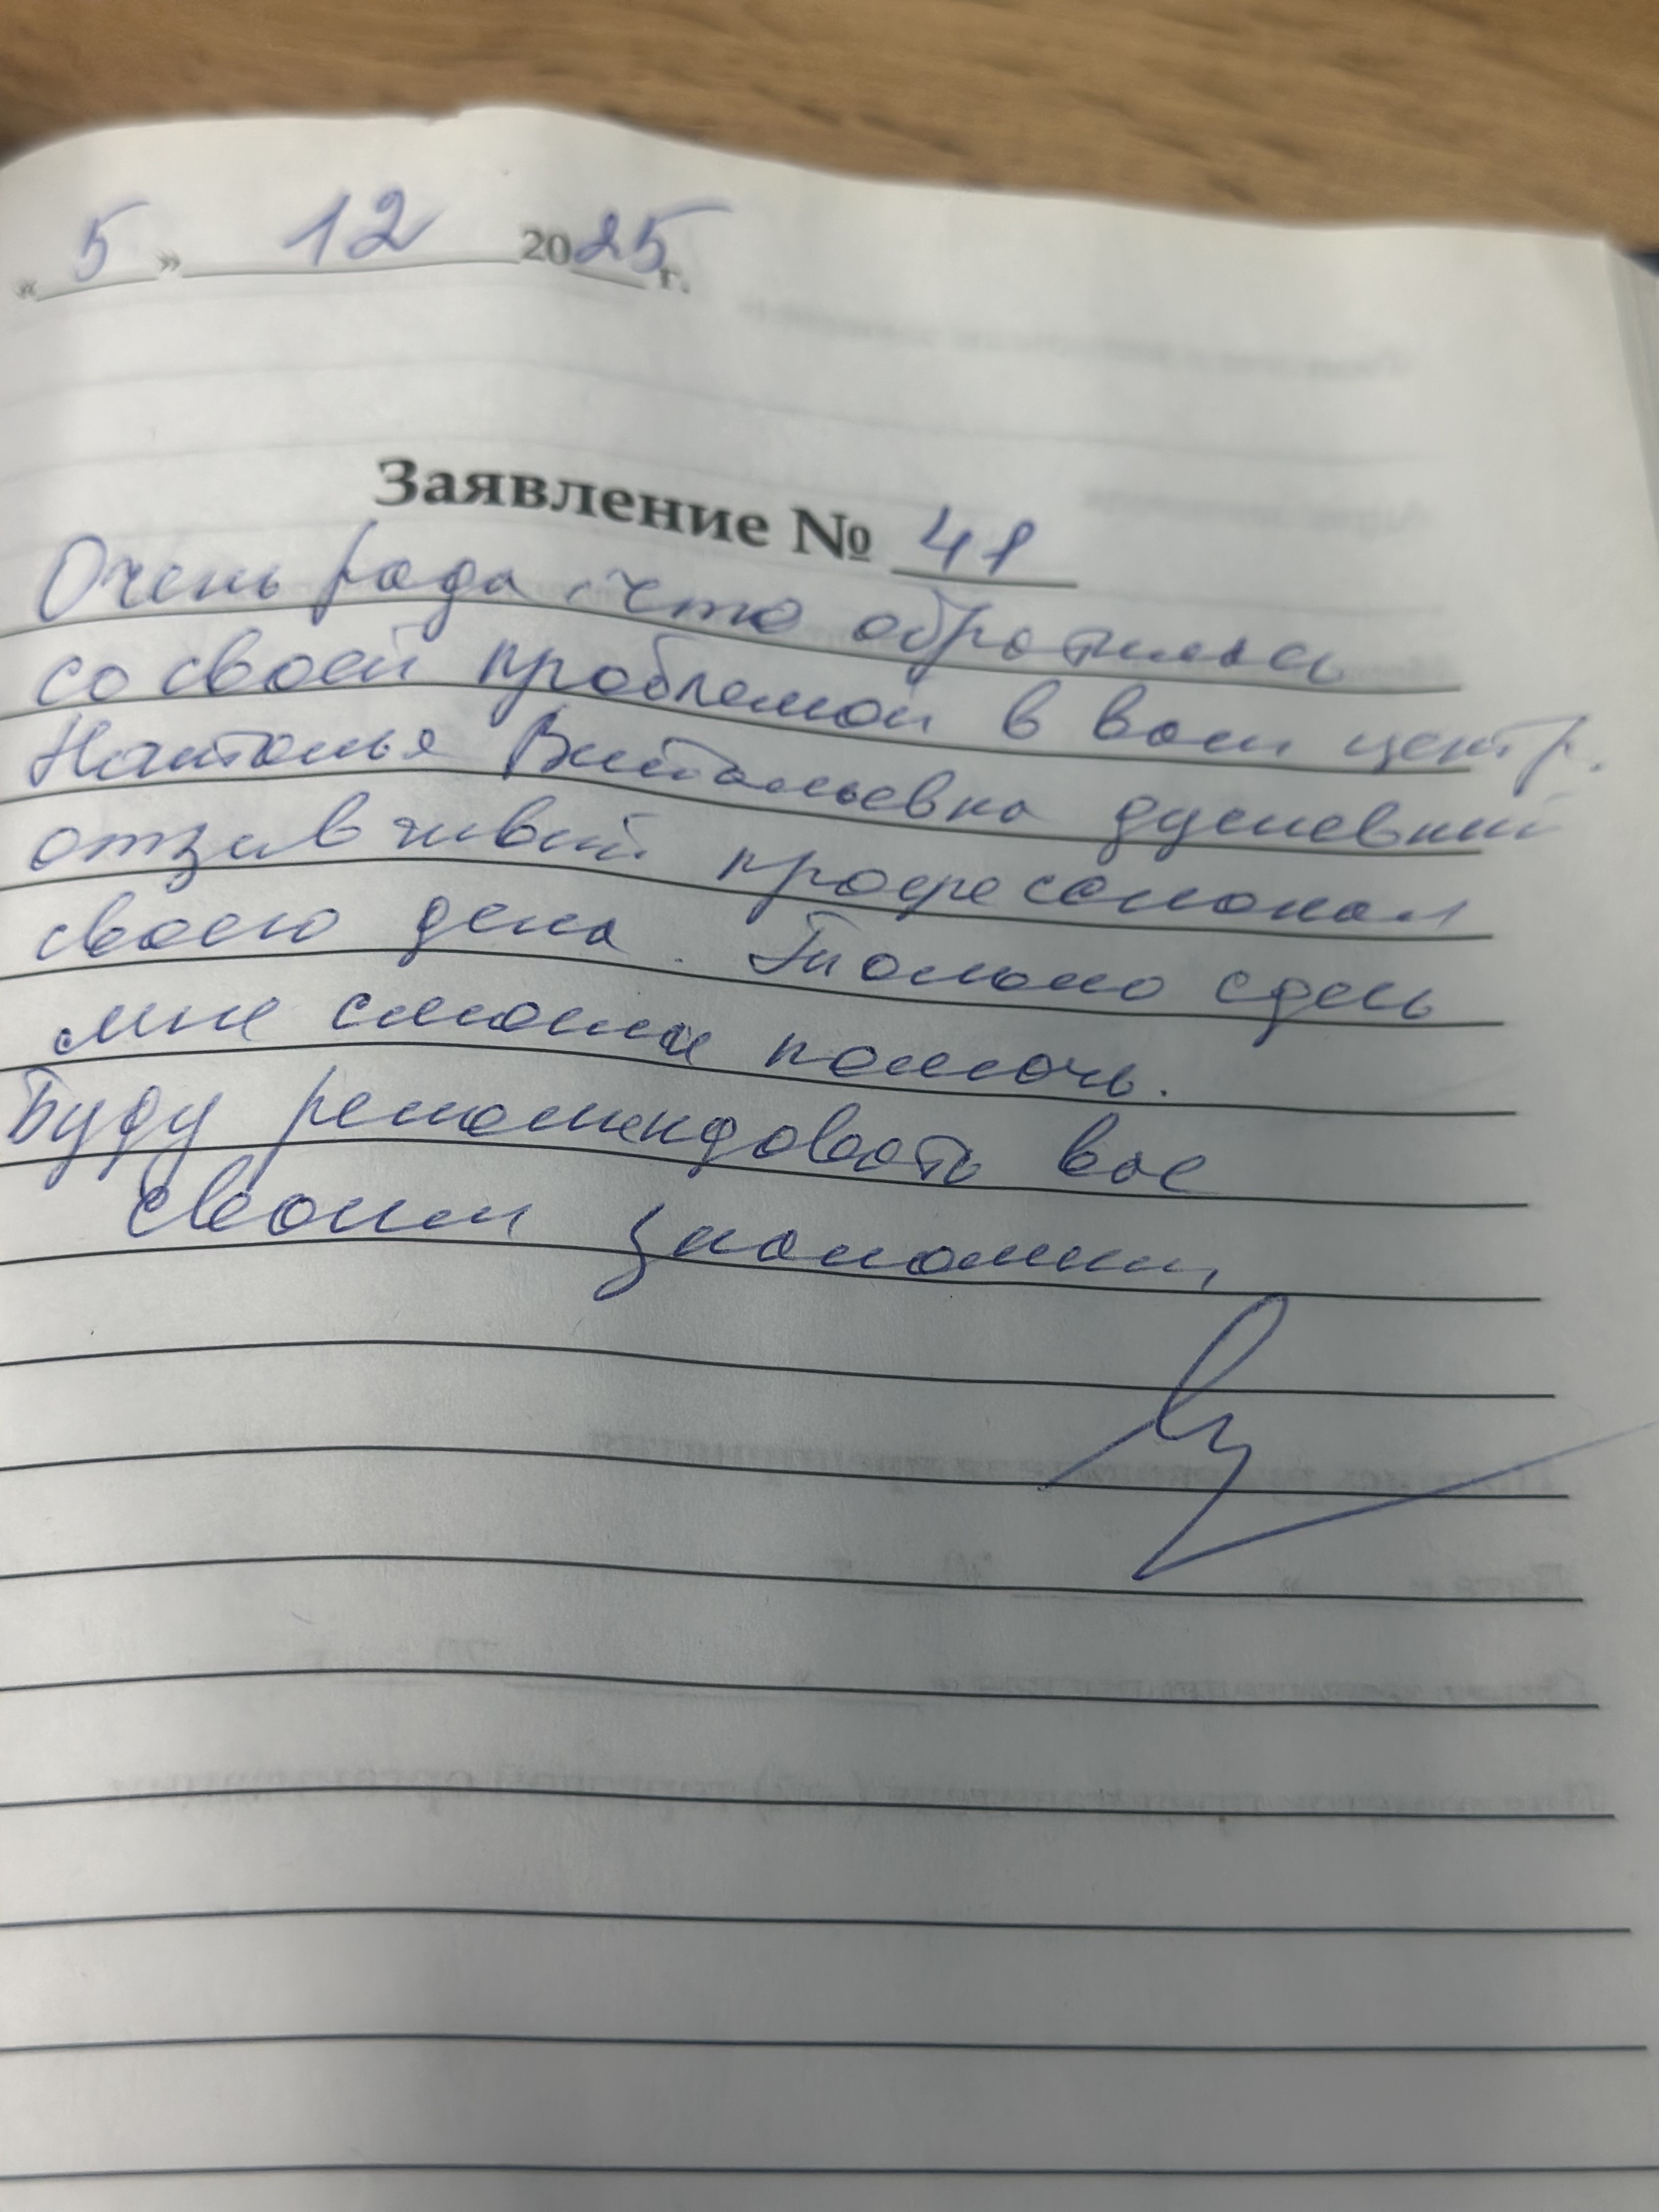 « 5 » 12 2025 г.
Заявление № 41
Очень рада, что обратилась
со своей проблемой в ваш центр.
Наталья Витальевна душевний
отзывчивий професионал
своего дела. Только сдесь
мне смогли помочь.
Буду рекомендовать вас
своим знакомым,